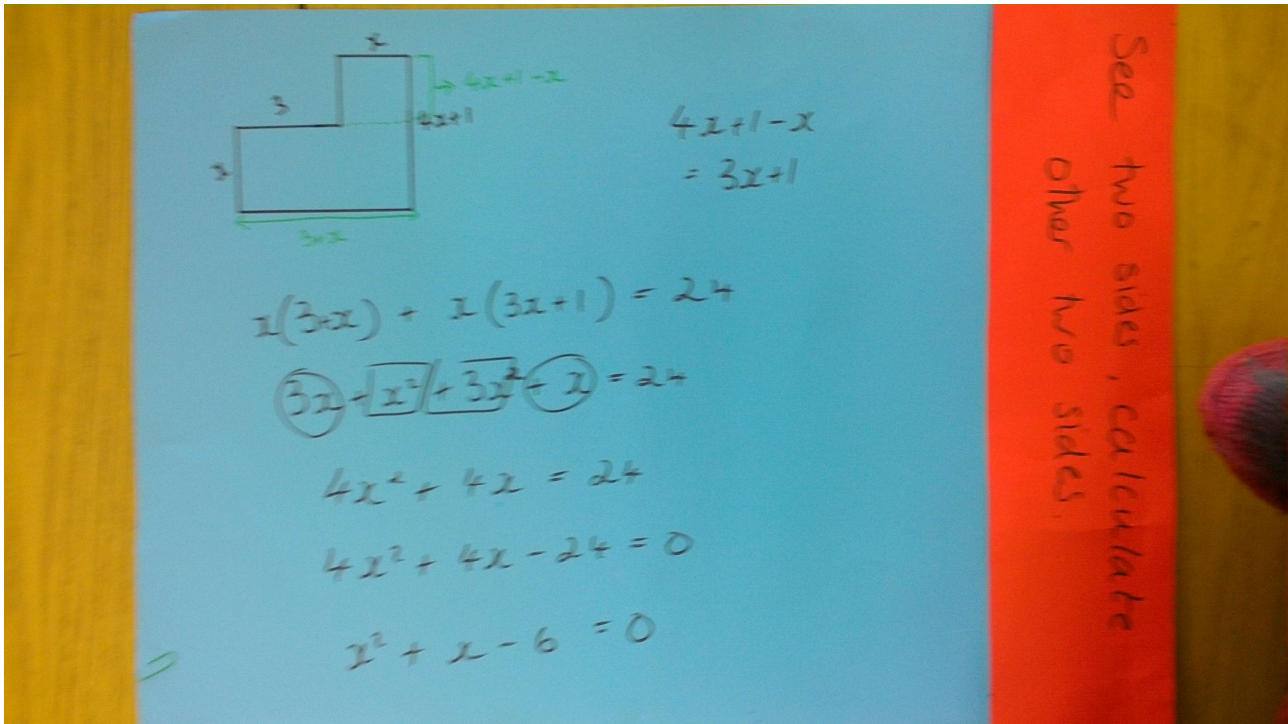 x
3
→ 4x+1-x
4x+1
x
3+x
4x+1-x
= 3x+1
x(3+x) + x(3x+1) = 24
3x + x² + 3x² + x = 24
4x² + 4x = 24
4x² + 4x - 24 = 0
x² + x - 6 = 0
See two sides, calculate
other two sides.